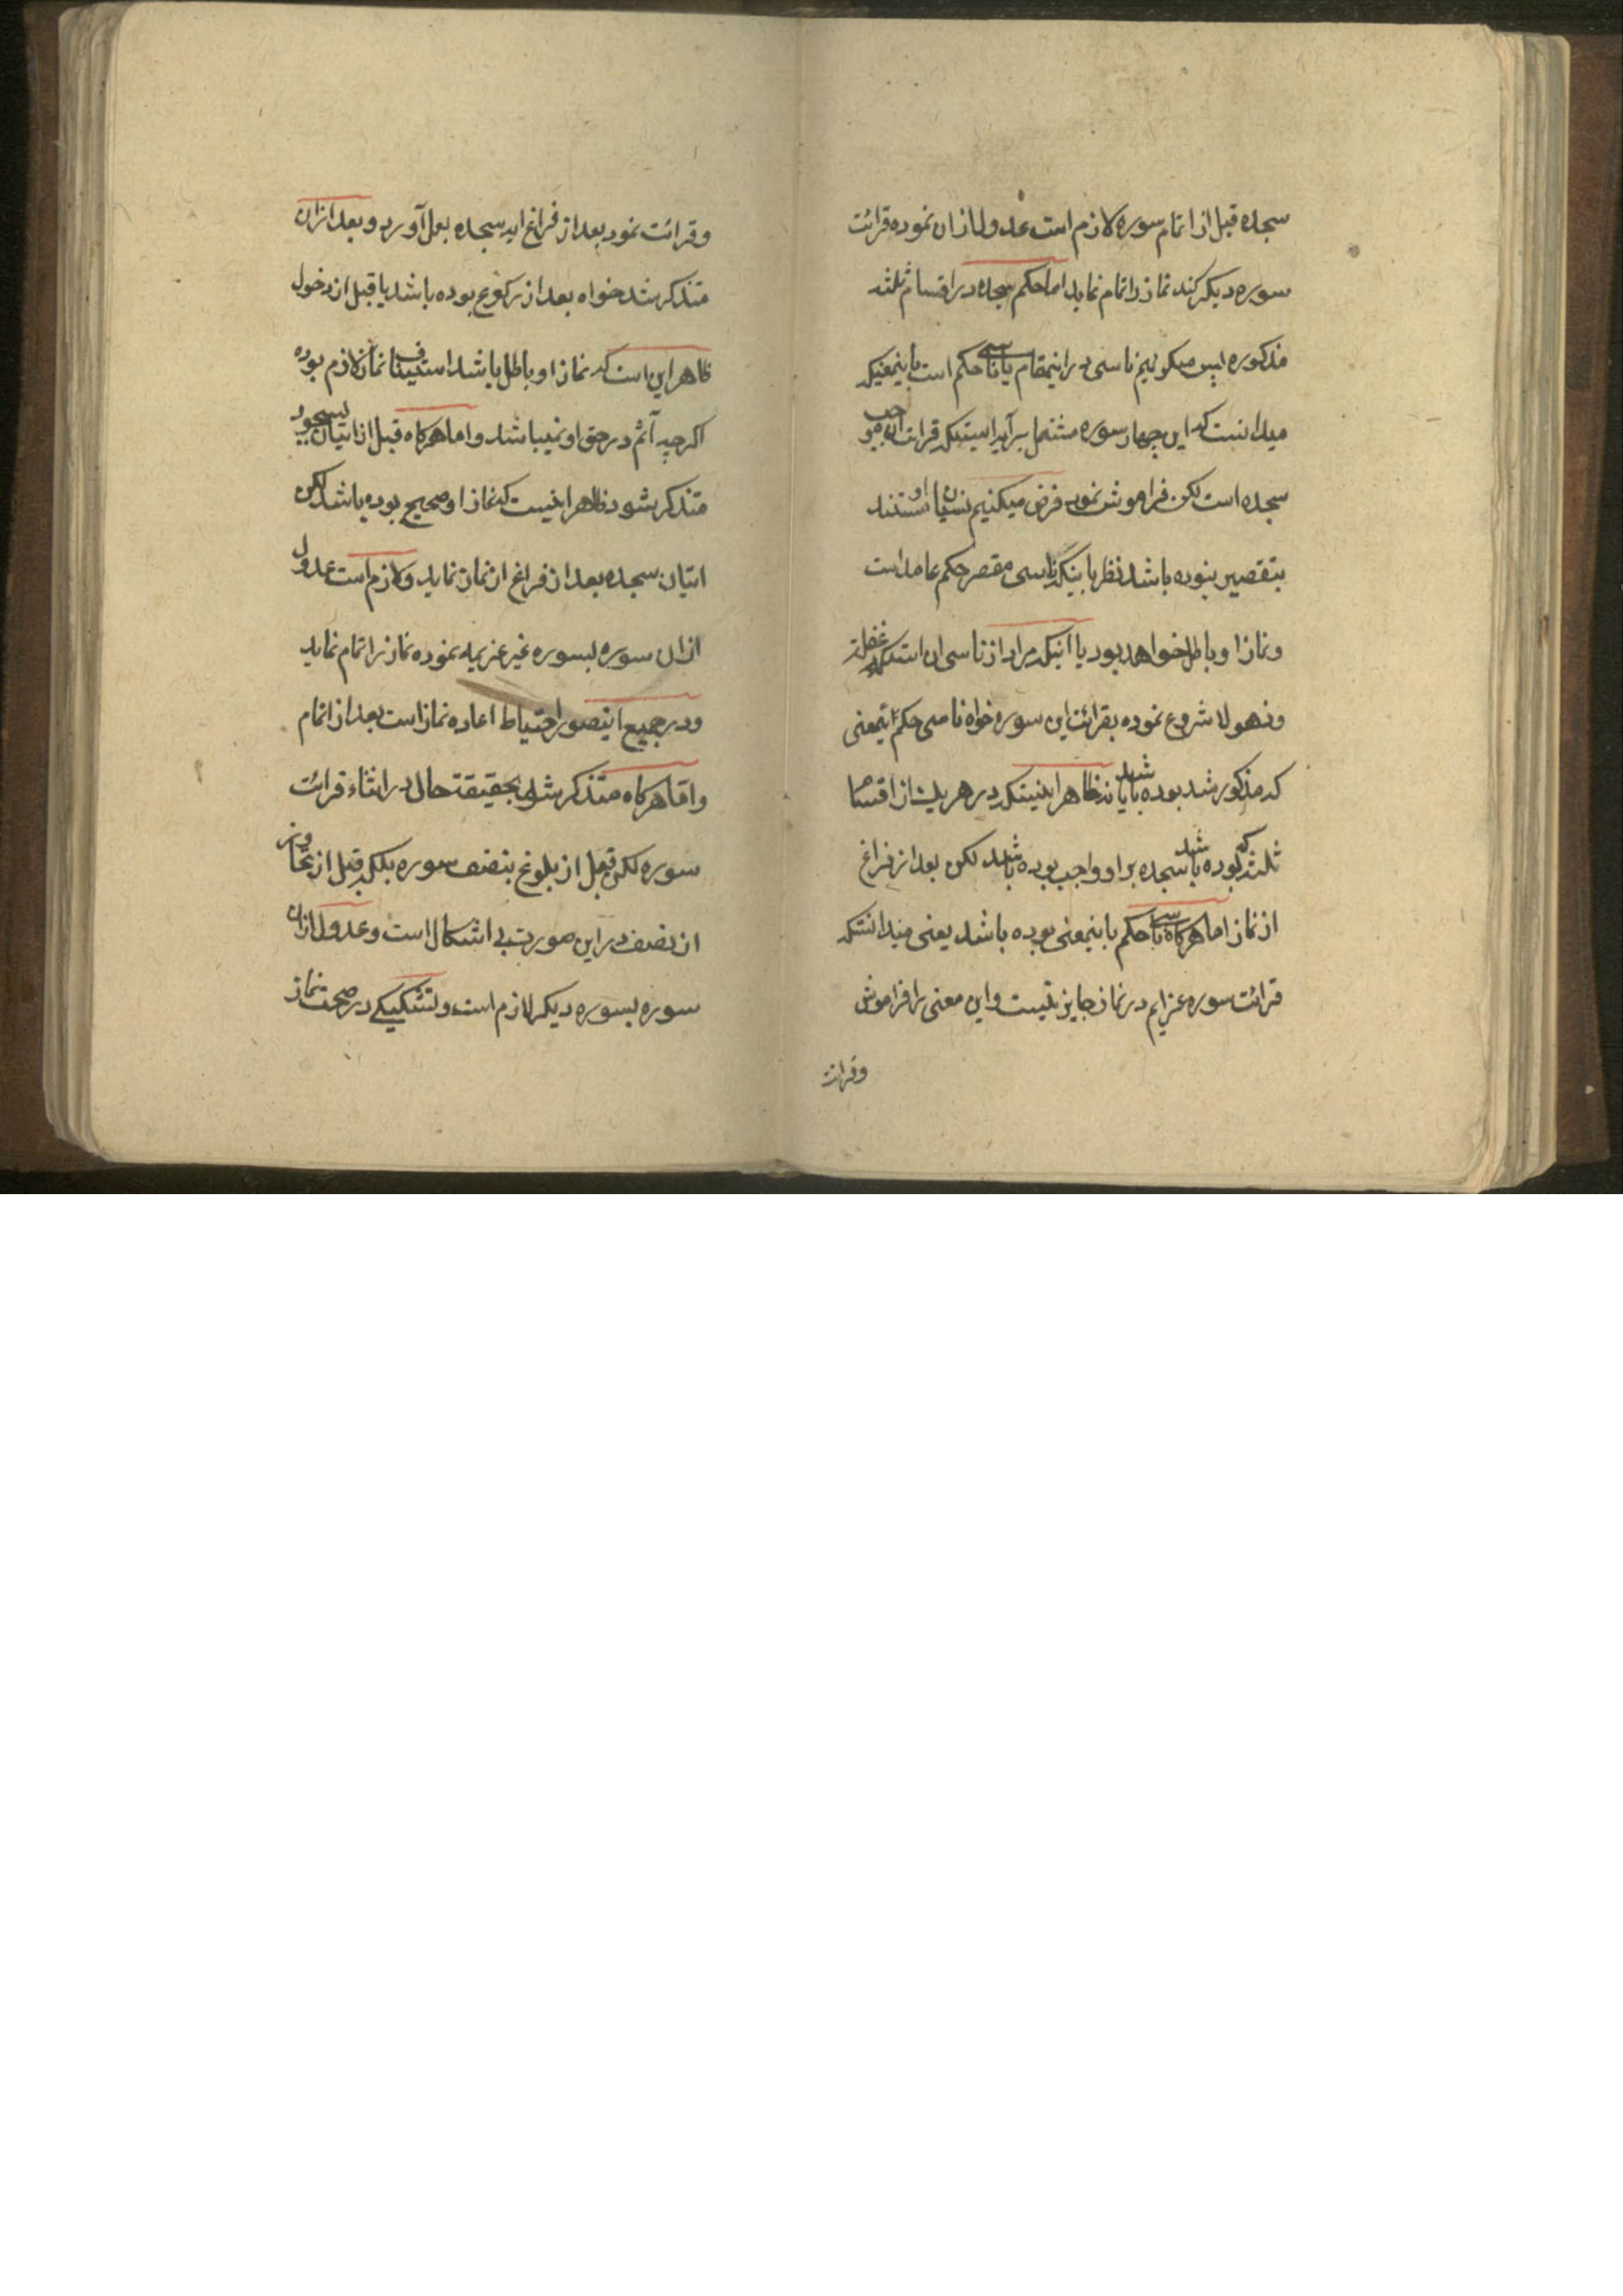 سجده قبل از اتمام سوره لازم است عدول از ان نموده قرائت
سوره دیکر کند نماز را تمام نماید اما حکم سجده در اقسام ثلثه
مذکوره پس میکوئیم ناسی در اینمقام یا ناسی حکم است باینمعنیکه
میدانست که این چهار سوره مشتمل بر آیه ایستکه قرائت ان موجب
سجده است لکن فراموش نموده فرض میکنیم نسیان او مستند
بتقصیر بنوده باشد نظر باینکه ناسی مقصر حکم عامد است
و نماز او باطل خواهد بود یا آنیکه مراد از ناسی ان استکه غفلة
و ذهولا شروع نموده بقرائت این سوره خواه ناسی حکم باینمعنی
که مذکور شد بوده باشد یا نه ظاهر اینستکه در هر یک از اقسام
ثلثه که بوده باشد سجده بر او واجب بوده باشد لکن بعد از فراغ
از نماز اما هرکاه ناسی حکم باینمعنی بوده باشد یعنی میدانستکه
قرائت سوره عزایم در نماز جایز نیست و این معنی را فراموش
وقرائت
وقرائت نمود بعد از فراغ ایه سجده بعمل آورد و بعد از ان
متذکر شد خواه بعد از رکوع بوده باشد یا قبل از دخول
ظاهر این است که نماز او باطل باشد استیناف نماز لازم بوده
اکرچه آثم در حق او نمیباشد و اما هرکاه قبل از اتیان بسجود
متذکر شود ظاهر اینست که نماز او صحیح بوده باشد لکن
اتیان سجده بعد از فراغ از نماز نماید و لازم است عدول
از ان سوره بسوره غیر عزیمه نموده نماز را تمام نماید
و در جمیع اینصور احتیاط اعاده نماز است بعد از اتمام
و اما هرکاه متذکر شد بحقیقت حال در اثناء قرائت
سوره لکن قبل از بلوغ بنصف سوره بلکه قبل از تجاوز
از نصف در این صورت بی اشکال است و عدول از ان
سوره بسوره دیکر لازم است و تشکیکی در صحت نماز